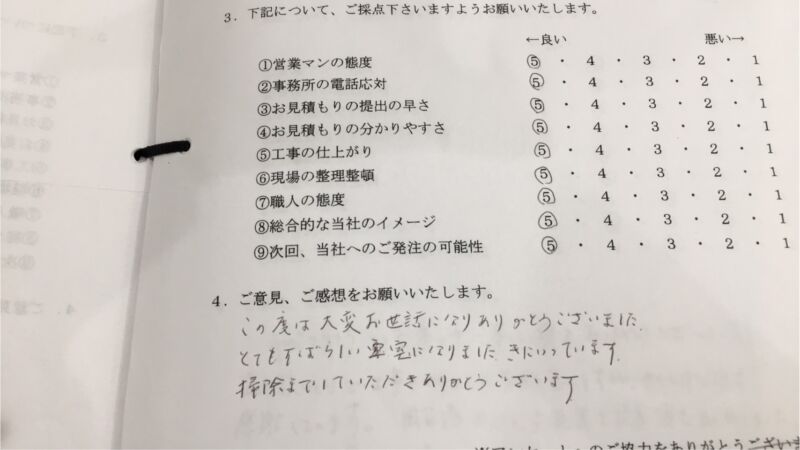 3．下記について、ご採点下さいますようお願いいたします。
←良い 悪い→
①営業マンの態度 5 ・ 4 ・ 3 ・ 2 ・ 1
②事務所の電話応対 5 ・ 4 ・ 3 ・ 2 ・ 1
③お見積もりの提出の早さ 5 ・ 4 ・ 3 ・ 2 ・ 1
④お見積もりの分かりやすさ 5 ・ 4 ・ 3 ・ 2 ・ 1
⑤工事の仕上がり 5 ・ 4 ・ 3 ・ 2 ・ 1
⑥現場の整理整頓 5 ・ 4 ・ 3 ・ 2 ・ 1
⑦職人の態度 5 ・ 4 ・ 3 ・ 2 ・ 1
⑧総合的な当社のイメージ 5 ・ 4 ・ 3 ・ 2 ・ 1
⑨次回、当社へのご発注の可能性 5 ・ 4 ・ 3 ・ 2 ・ 1
4．ご意見、ご感想をお願いいたします。
この度は大変お世話になりありがとうございました。
とてもすばらしい寝室になりました。きにいっています。
掃除までしていただきありがとうございます
のご協力をありがとうござい